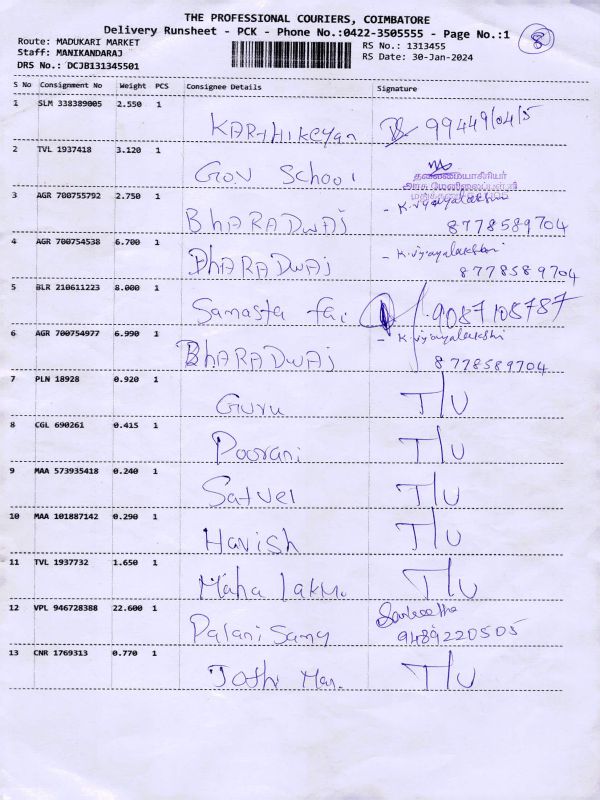 THE PROFESSIONAL COURIERS, COIMBATORE
Delivery Runsheet - PCK - Phone No.:0422-3505555 - Page No.:1 8
Route: MADUKARI MARKET
Staff: MANIKANDARAJ
DRS No.: DCJB131345501
RS No.: 1313455
RS Date: 30-Jan-2024
S No Consignment No Weight PCS Consignee Details Signature
1 SLM 338389005 2.550 1 KARTHIKEyan 99449/04/5
2 TVL 1937418 3.120 1 GOV SCHOOl
தலைமையாசிரியர்
அரசு மேனிலைப்பள்ளி
3 AGR 700755792 2.750 1 BhARADWAJ - K.Vijayalakshmi
8778589704
4 AGR 700754538 6.700 1 BhARADWAJ - K.Vijayalakshmi
8778589704
5 BLR 210611223 8.000 1 Samasta fai 9087108787
6 AGR 700754977 6.990 1 BhARADWAJ - K.Vijayalakshmi
8778589704
7 PLN 18928 0.920 1 Guru T/U
8 CGL 690261 0.415 1 Poorani T/U
9 MAA 573935418 0.240 1 Satvel T/U
10 MAA 101887142 0.290 1 Havish T/U
11 TVL 1937732 1.650 1 Maha lakmi T/U
12 VPL 946728388 22.600 1 Palani Samy Sangeetha
9489220505
13 CNR 1769313 0.770 1 Jothi Man. T/U